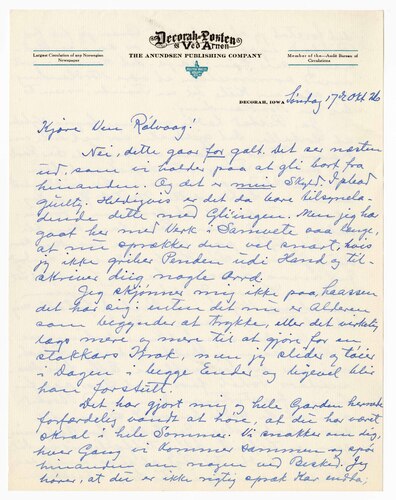 Decorah-Posten
og Ved Arnen
THE ANUNDSEN PUBLISHING COMPANY
Largest Circulation of any Norwegian
Newspaper
Member of the Audit Bureau of
Circulations
DECORAH, IOWA Søndag 17de Okt 26
Kjære Ven Rølvaag!
Nei, dette gaar for galt. Det ser næsten
ud, som vi holder paa at gli bort fra
hinanden. Og det er min Skyld. I plead
guilty. Heldigvis er det da bare tilsynela-
dende dette med Glidningen. Men jeg har
gaat her med Værk i Samvette saa længe,
at nu sprækker den vel snart, hvis
jeg ikke griber Penden udi Haand og til-
skriver dig nogle Ord.
Jeg skjønner mig ikke paa, haassen
det har sig: enten det nu er Alderen
som begynder at trykke, eller det virkelig
mere og mere til at gjøre for en
stakkars Krok, men jeg slider og tøier
i Dagen i begge Ender og ligevel blir
han forstutt.
Det har gjort mig og hele Garden
forfærdelig vondt at høre, at du har været
skral i hele Sommer. Vi snakker om dig,
hver Gang vi kommer sammen og spør
hinanden om nogen ved Besked. Jeg
hører, at du er ikke rigtig spræk Kar endda,